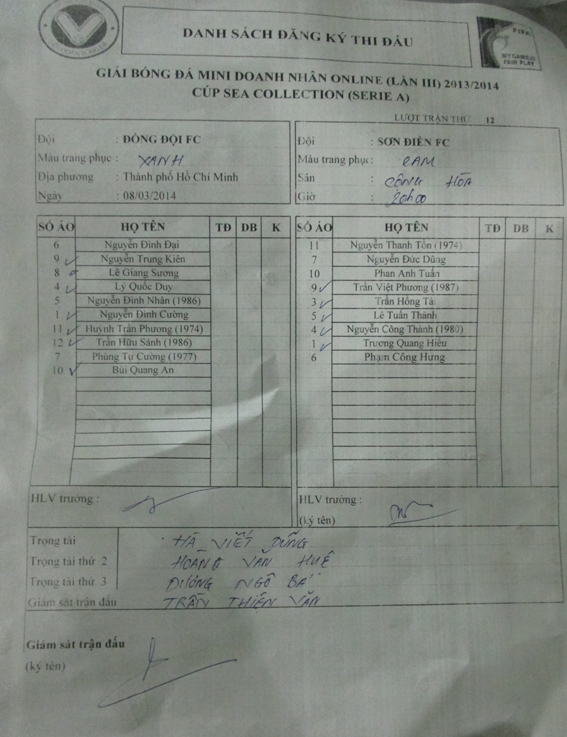 DANH SÁCH ĐĂNG KÝ THI ĐẤU
FIFA
MY GAME IS FAIR PLAY
GIẢI BÓNG ĐÁ MINI DOANH NHÂN ONLINE (LẦN III) 2013/2014
CÚP SEA COLLECTION (SERIE A)
LƯỢT TRẬN THỨ 12
Đội : ĐỒNG ĐỘI FC
Màu trang phục : XANH
Địa phương : Thành phố Hồ Chí Minh
Ngày : 08/03/2014
Đội : SƠN ĐIỀN FC
Màu trang phục : CAM
Sân : CỘNG HÒA
Giờ : 20h00
SỐ ÁO HỌ TÊN TĐ DB K
6 Nguyễn Đình Đại
9 Nguyễn Trung Kiên
8 Lê Giang Sương
4 Lý Quốc Duy
5 Nguyễn Đình Nhân (1986)
1 Nguyễn Đình Cường
11 Huỳnh Trần Phương (1974)
12 Trần Hữu Sánh (1986)
7 Phùng Tự Cường (1977)
10 Bùi Quang An
SỐ ÁO HỌ TÊN TĐ DB K
11 Nguyễn Thanh Tôn (1974)
7 Nguyễn Đức Dũng
10 Phan Anh Tuấn
9 Trần Việt Phương (1987)
3 Trần Hồng Tài
5 Lê Tuấn Thành
4 Nguyễn Công Thành (1980)
1 Trương Quang Hiếu
6 Phạm Công Hưng
HLV trưởng :
HLV trưởng :
(ký tên)
Trọng tài HÀ VIẾT DŨNG
Trọng tài thứ 2 HOÀNG VĂN HUÊ
Trọng tài thứ 3 NGÔ BÁ
Giám sát trận đấu TRẦN THIÊN VĂN
Giám sát trận đấu
(ký tên)